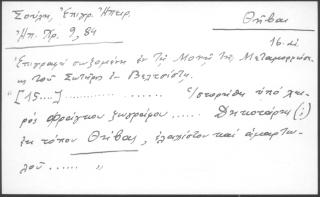 Σούλη, Ἐπιγρ. Ἠπειρ.
Θῆβαι
Ἠπ. Χρ. 9, 84
16. αἰ.
Ἐπιγραφὴ σωζομένη ἐν τῇ Μονῇ τῆς Μεταμορφώσε
ως τοῦ Σωτῆρος ἐν Βελτσίστῃ.
"[15....] ............ ἱστορήθη ὑπὸ χει
ρὸς Φράγκου ζωγράφου ...... Δηκοτάρη (;)
ἐκ τόπου Θήβας, ἐλαχίστου καὶ ἁμαρτω-
λοῦ ...... "